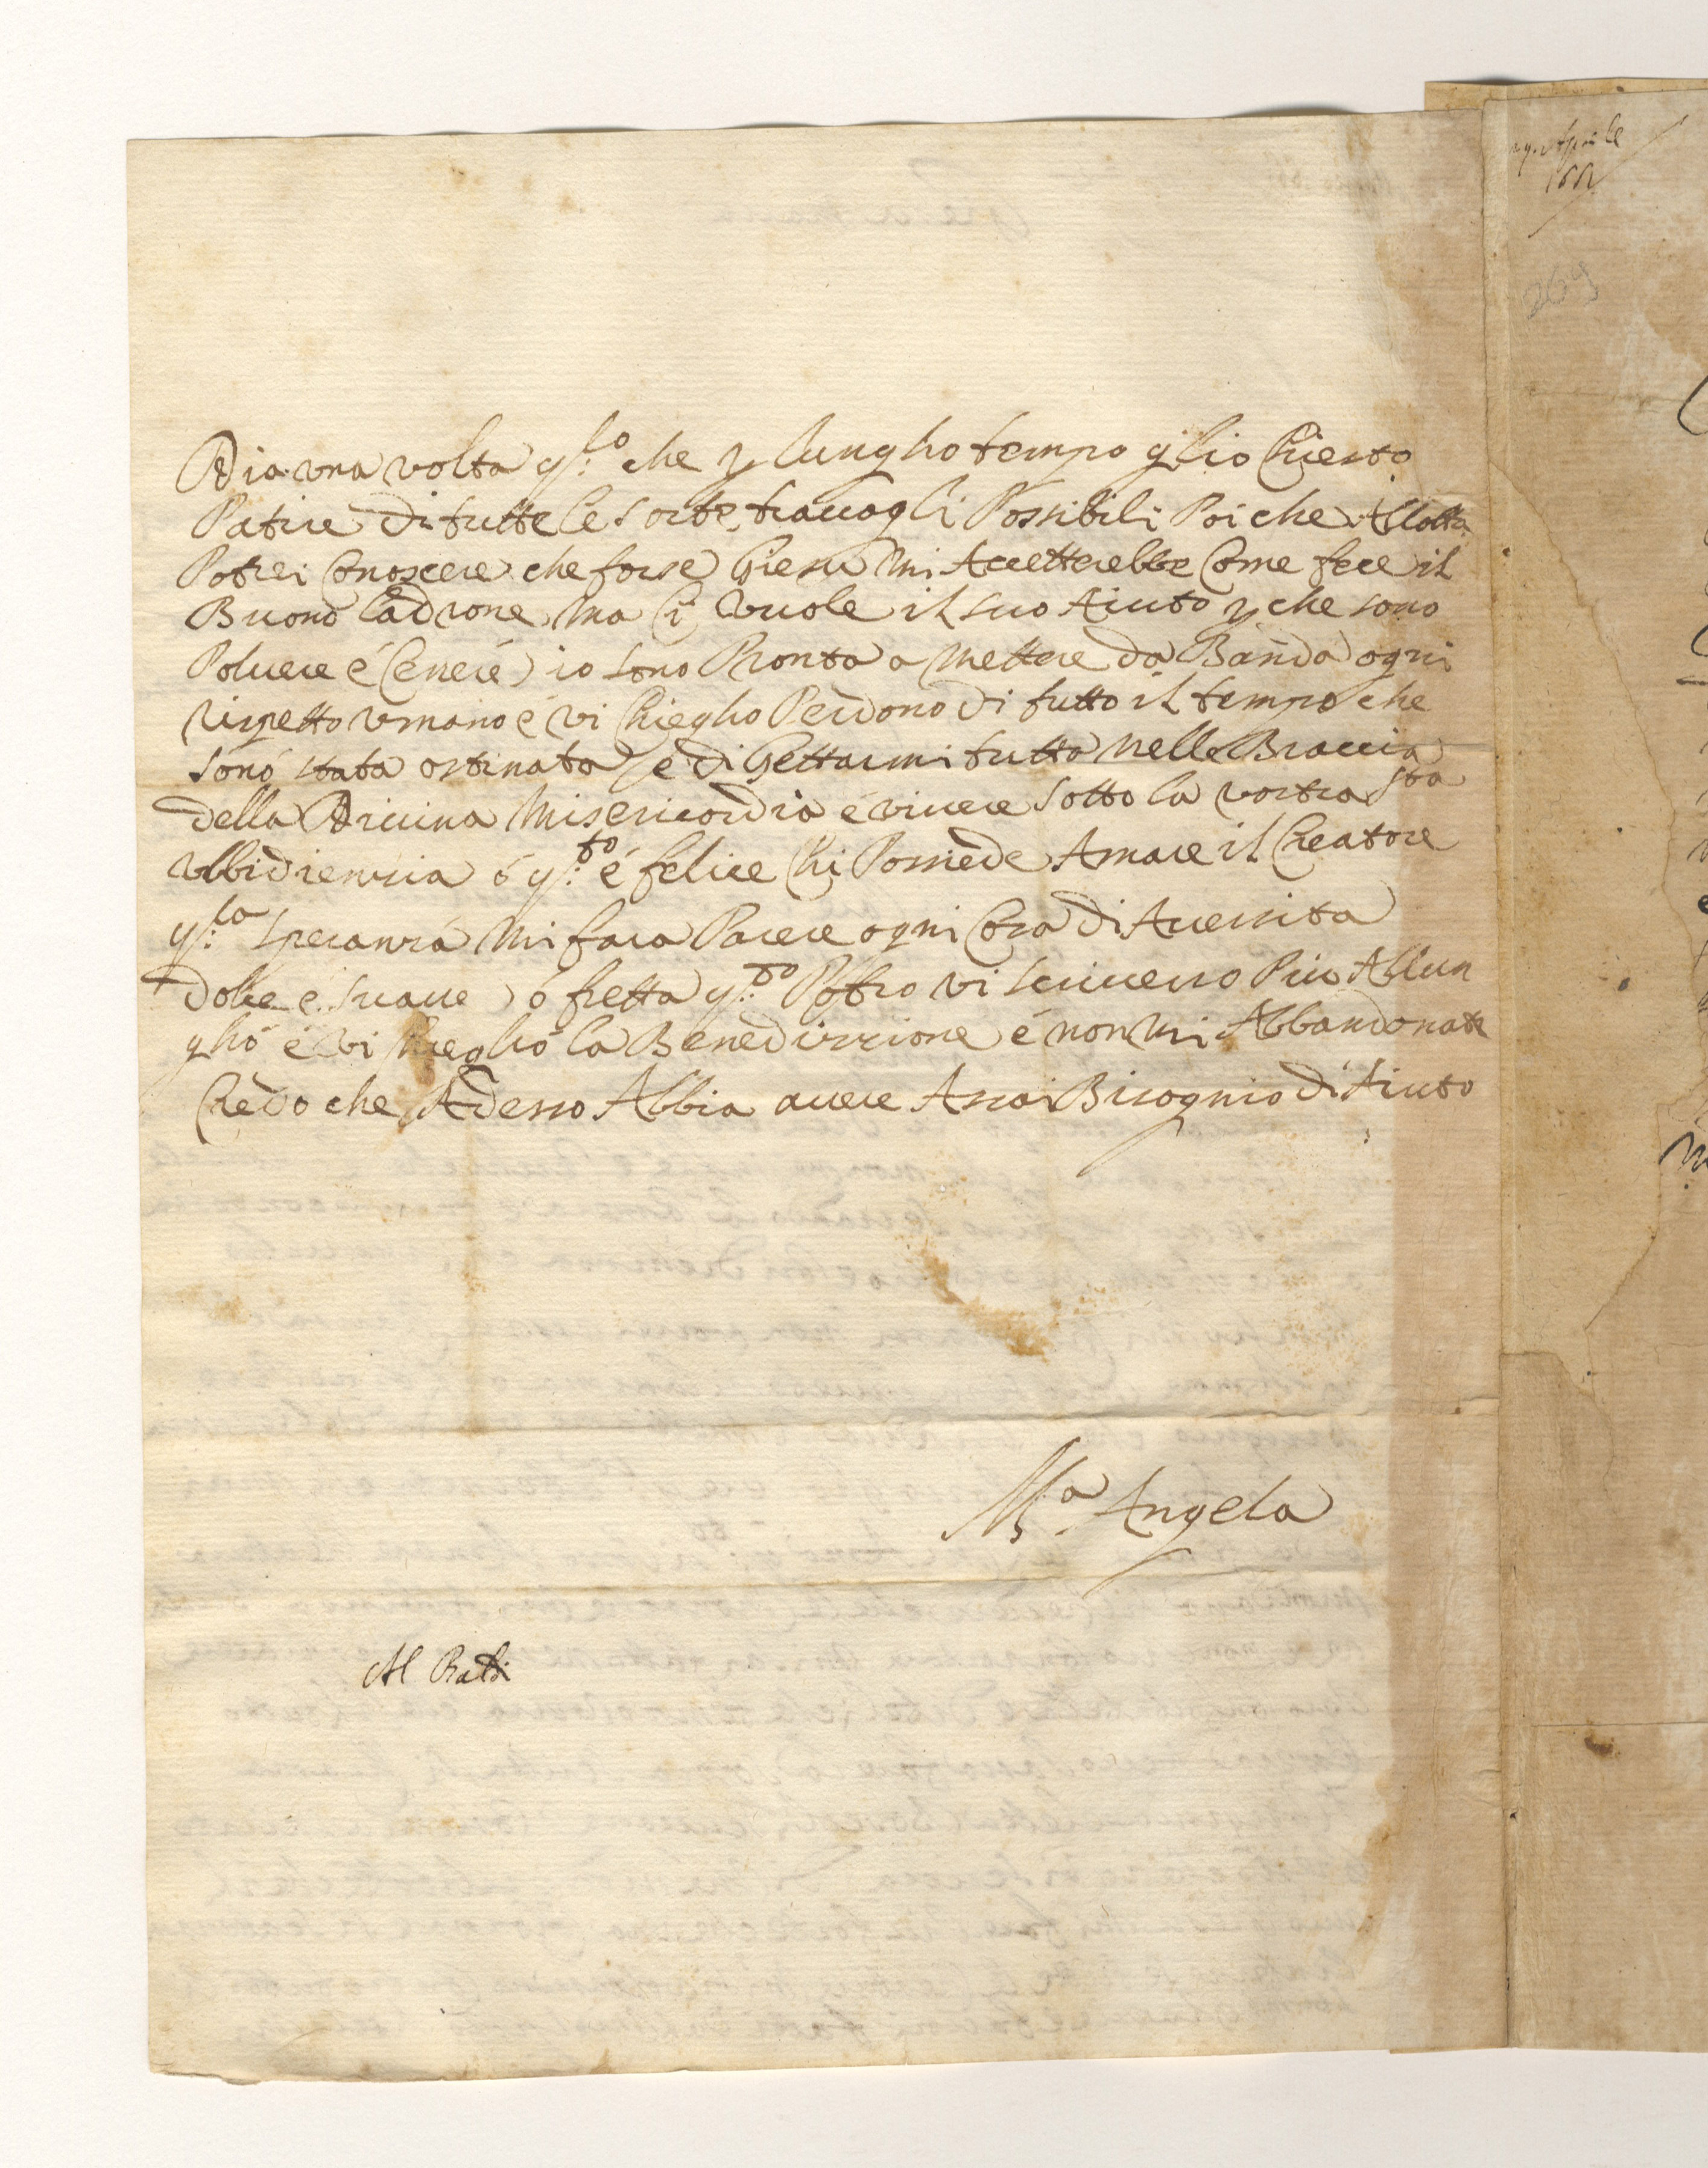 Dia una volta q.lo che p lungho tempo gl'io Chiesto
Patire di tutte le sorte travagli Possibili Poi che Allotta
Potrei Conoscere che forse Giesu Mi Accetterebbe Come fece il
Buono ladrone Ma Ci vuole il suo Aiuto p che sono
Poluere é Cenere io sono Pronta a Mettere da Banda ogni
rispetto vmano é vi Chiegho Perdono di tutto il tempo che
sono stata ostinata e di Gettarmi tutta nelle Braccia
della Diuina Misericordia é viuere sotto la vostra sta
vbbidienzia ó q.to é felice Chi Possiede Amare il Creatore
q.la speranza Mi fara Parere ogni Cosa di Auersita
dolce é suaue ó fretta q.do Potro vi scriuerro Piu Allun
ghó é vi Chiegho la Benedizzione é non Mi Abbandonate
Credo che Adesso Abbia auere Assai Bisognio di Aiuto
M.a Angela
Al Baldi
Aprile
269